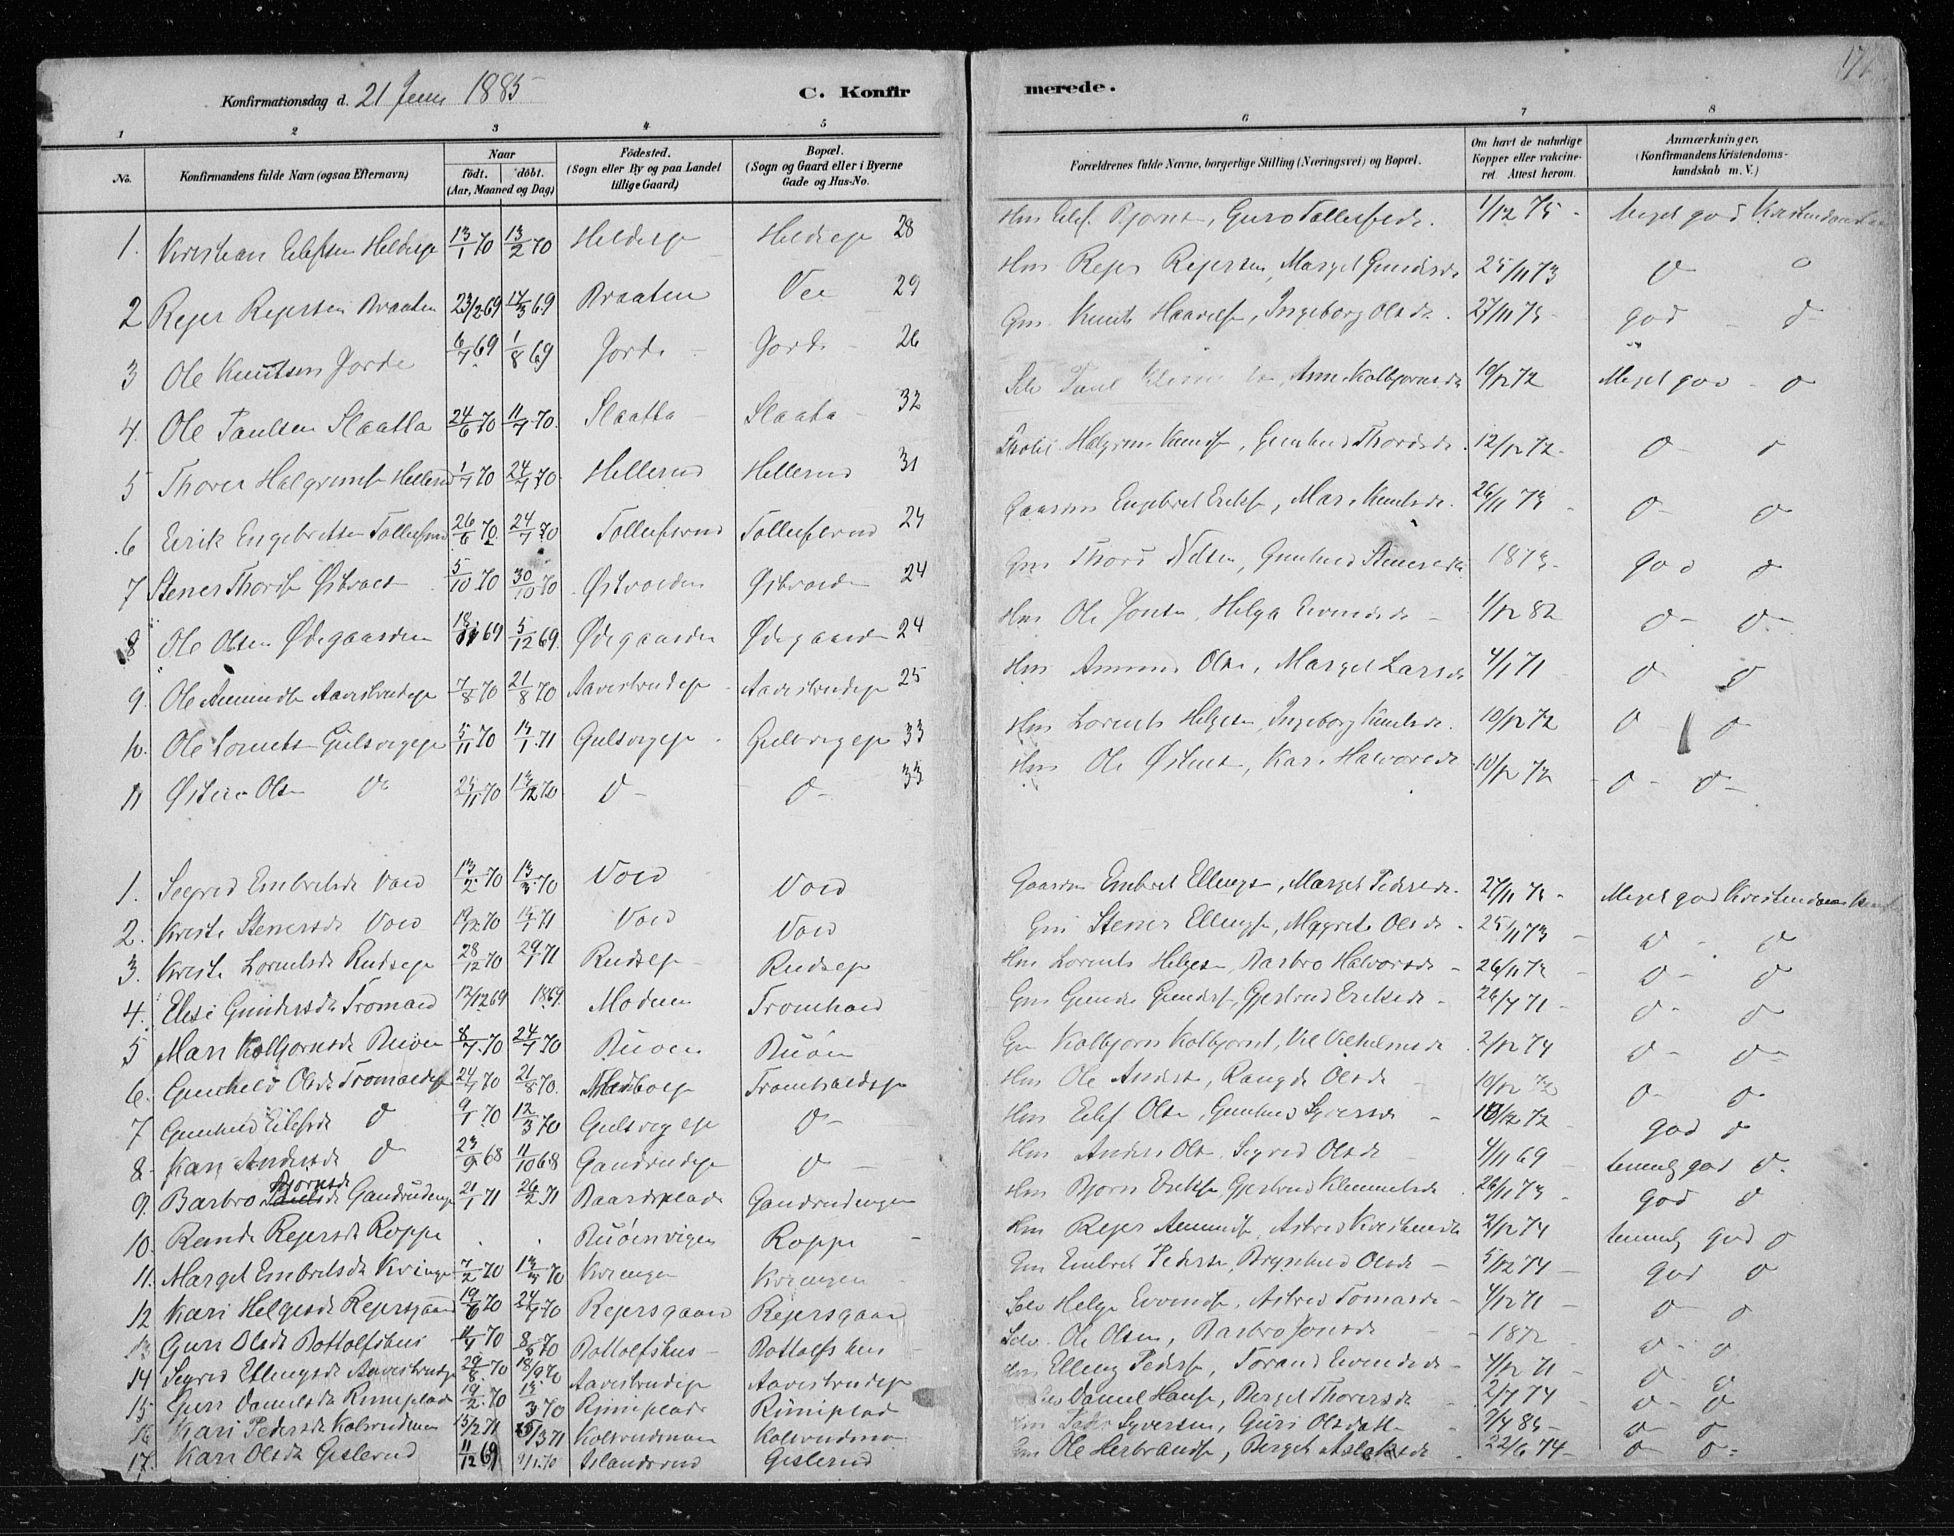 Konfirmationsdag d. 21 Juni 1885 C. Konfirmerede.
1 2 3 4 5 6 7 8
No. Konfirmandens fulde Navn (ogsaa Efternavn) Naar födt. döbt. (Aar, Maaned og Dag) Födested. (Sogn eller By og paa Landet tillige Gaard) Bopæl. (Sogn og Gaard eller i Byerne Gade og Hus-No. Forældrenes fulde Navne, borgerlige Stilling (Næringsvei) og Bopæl. Om havt de naturlige Kopper eller vakcineret. Attest herom. Anmærkninger. (Konfirmandens Kristendomskundskab m. V.)
1. Kristian Eilefsen Heldseje 13/1 70 13/2 70 Heldseje Heldseje 28 Hm Eilef Bjørns, Guro Tollefsd. 1/12 75 Meget god Kristendoms
2 Rejer Rejersen Braaten 23/2 69 14/3 69 Braaten Vee 29 Hm Rejer Rejersen, Marget Gundersd 25/11 73
3 Ole Knutsen Jorde 6/7 69 1/8 69 Jorde Jorde 26 Gm. Knut Haavels, Ingeborg Olsd. 27/11 73 god
4. Ole Paulsen Slaatta 24/6 70 11/7 70 Slaatta Slaata 32 Selv Paul, Anne Kolbjørnsd 10/12 72 Meget god
5 Thorer Halgrims Hellerud 1/7 70 24/7 70 Hellerud Hellerud 31 Halgrim Knuds, Gunhild Thordsd. 12/12 72
6 Eirik Engebretsen Tollefsrud 26/6 70 24/7 70 Tollefsrud Tollefsrud 24 Gaardm Engebret Eriks, Mari Knutsd. 26/11 73
7 Stener Thords Østvold 5/10 70 30/10 70 Østvolden Østvold 24 Gm Thord Nelsen, Gunhild Stenersd 1873 god
8 Ole Olsen Ødegaarden 18/11 69 5/12 69 Ødegaarden Ødegaard 24 Hm Ole Jonsen, Helga Evendsd 1/12 82
9. Ole Amunds Aavestrudeje 7/8 70 21/8 70 Aavestrudeje Aavestrudeje 25 Hm Amund Ols, Marget Larsd 4/1 71
10. Ole Lorents Gulsvigeje 5/11 70 1/1 71 Gulsvigeje Gulsvigeje 33 Hm Lorents Helges, Ingeborg Knutsd. 10/12 72
11 Østen Olsen 33 Hm Ole Østens, Kari Halvorsd 10/12 72
1. Segred Embretsd Vold 13/2 70 13/3 70 Vold Vold Gaardm Embret Ellings, Marget Pedersd. 27/11 73 Meget god Kristendoms
2. Kristi Stenersd Vold Vold Vold Gm Stener Ellings, Margret Olsd 25/11 73
3. Kristi Lorentsd Rudseje 28/12 70 29/1 71 Rudseje Rudseje Hm Lorents Helges, Barbro Halvorsd 26/11 73
4. Elesi Gundersd Tromald 12/12 69 1869 Moduen Tromhald Gm Gunder Gunders, Gjertrud Eriksd 26/7 71
5 Mari Kolbjørnsd Ruen 8/7 70 24/7 70 Ruøen Ruøen Gm Kolbjørn Kolbjørns, Vel Vilhelmsd 2/12 74
6. Gunhild Olsd Tromaldseje 24/7 70 21/8 70 Tromhaldseje Hm Ole Anders, Rangdi Olsd 10/12 72
7 Gunhild Eilefsd 9/1 70 12/3 70 Gulsvigeje Hm Eilef Olsen, Gunhild Syversd 10/12 72 god
8. Kari Andersd 23/9 68 11/10 68 Gandrudeje Hm Anders Ols, Segred Olsd 4/11 69 temmelig god
9. Barbro Bjornsd Gandrudenge 21/1 71 26/2 71 Baardsplads Gandrudenge Hm Bjørn Eriksen, Gjertrud Klemmetsd 26/11 73 god
10. Rande Rejersd Roppe Ruøenvigen Roppe Hm Rejer Amunds, Astrid Kristensd 2/12 74 temmelig god
11. Marget Embretsd Kvinge 7/2 70 Kvengen Kvengen Gm Embret Peders, Brynhild Olsd 5/12 74 god
12 Kari Helgesd Rejersgaard 19/6 70 24/7 70 Rejersgaard Rejersgaard Selv Helge Evends, Astrid Tomasd 4/12 71
13 Guri Olsd Bottolfshus 11/4 70 8/5 70 Bottolfshus Bottolfshus Selv. Ole Olsen, Barbro Jonsd 1872
14 Segred Ellingsd Aavestrudeje 29/8 70 18/9 70 Aavestrudeje Aavestrudeje Hm Elling Peders, Torand Evendsd 4/12 71
15 Guri Danielsd Rimeplads 19/2 70 13/3 70 Rimeplads Rimeplad Daniel Hans, Berget Thorersd 2/7 74
16 Kari Pedersd Kolsrudmoen 15/2 71 Kolsrudmoen Kolsrudmo Peder Syversen, Guri Olsdatt 7/4 85
17. Kari Olsd Gislerud 11/12 69 Islandsrud Gislerud Gm Ole Herbrands, Berget Aslaksd 22/6 74